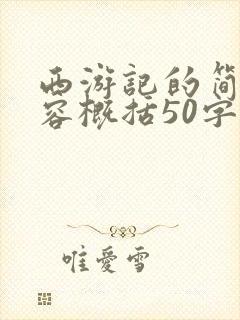 西游记的简
容概括50字
唯愛雪